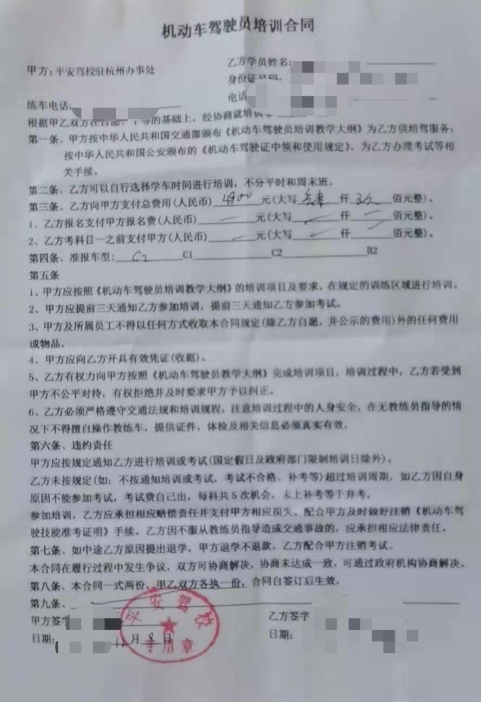 机动车驾驶员培训合同
甲方：平安驾校驻杭州办事处
乙方学员姓名：
身份证号码：
练车电话
电话
根据甲乙双方在自愿、平等的基础上，经协商就培训
第一条、甲方按中华人民共和国交通部颁布《机动车驾驶员培训教学大纲》为乙方供培驾服务；
按中华人民共和国公安颁布的《机动车驾驶证申领和使用规定》、为乙方办理考试等相
关手续。
第二条、乙方可以自行选择学车时间进行培训，不分平时和周末班。
第三条、乙方向甲方支付总费用(人民币) 4900 元(大写 仟 佰元整)。
1、乙方报名支付甲方报名费(人民币) 元(大写 仟 佰元整)。
2、乙方考科目一之前支付甲方(人民币) 元(大写 仟 佰元整)。
第四条、准报车型： C2 C1 C2 B2
第五条
1、甲方应按照《机动车驾驶员培训教学大纲》的培训项目及要求，在规定的训练区域进行培训。
2、甲方应提前三天通知乙方参加培训，提前三天通知乙方参加考试。
3、甲方及所属员工不得以任何方式收取本合同规定(除乙方自愿，并公示的费用)外的任何费用
或物品。
4、甲方应向乙方开具有效凭证(收据)。
5、乙方有权力向甲方按照《机动车驾驶员教学大纲》完成培训项目，培训过程中，乙方若受到
甲方不公平对待，有权拒绝并及时要求甲方予以纠正。
6、乙方必须严格遵守交通法规和培训规程，注意培训过程中的人身安全，在无教练员指导的情
况下不得擅自操作教练车，提供证件，体检及相关信息必须真实有效。
第六条、违约责任
甲方应按规定通知乙方进行培训或考试(国定假日及政府部门限制培训日除外)。
乙方未按规定(如：不按通知培训或考试，考试不合格、补考等)超过培训周期，如乙方因自身
原因不能参加考试，考试费自己出，每科共5次机会，未上补考等于弃考。
参加培训，乙方应承担相应赔偿责任并支付甲方相应损失。配合甲方及时做好注销《机动车驾
驶技能准考证明》手续。乙方因不服从教练员指导造成交通事故的，应承担相应法律责任。
第七条、如中途乙方原因提出退学，甲方退学不退款，乙方配合甲方注销考试。
本合同在履行过程中发生争议，双方可协商解决，协商未达成一致，可通过政府机构协商解决。
第八条、本合同一式两份，甲乙双方各执一份，合同自签订后生效。
第九条、
甲方签字
乙方签字
日期： 12月8日
日期：
平安驾校
专用章